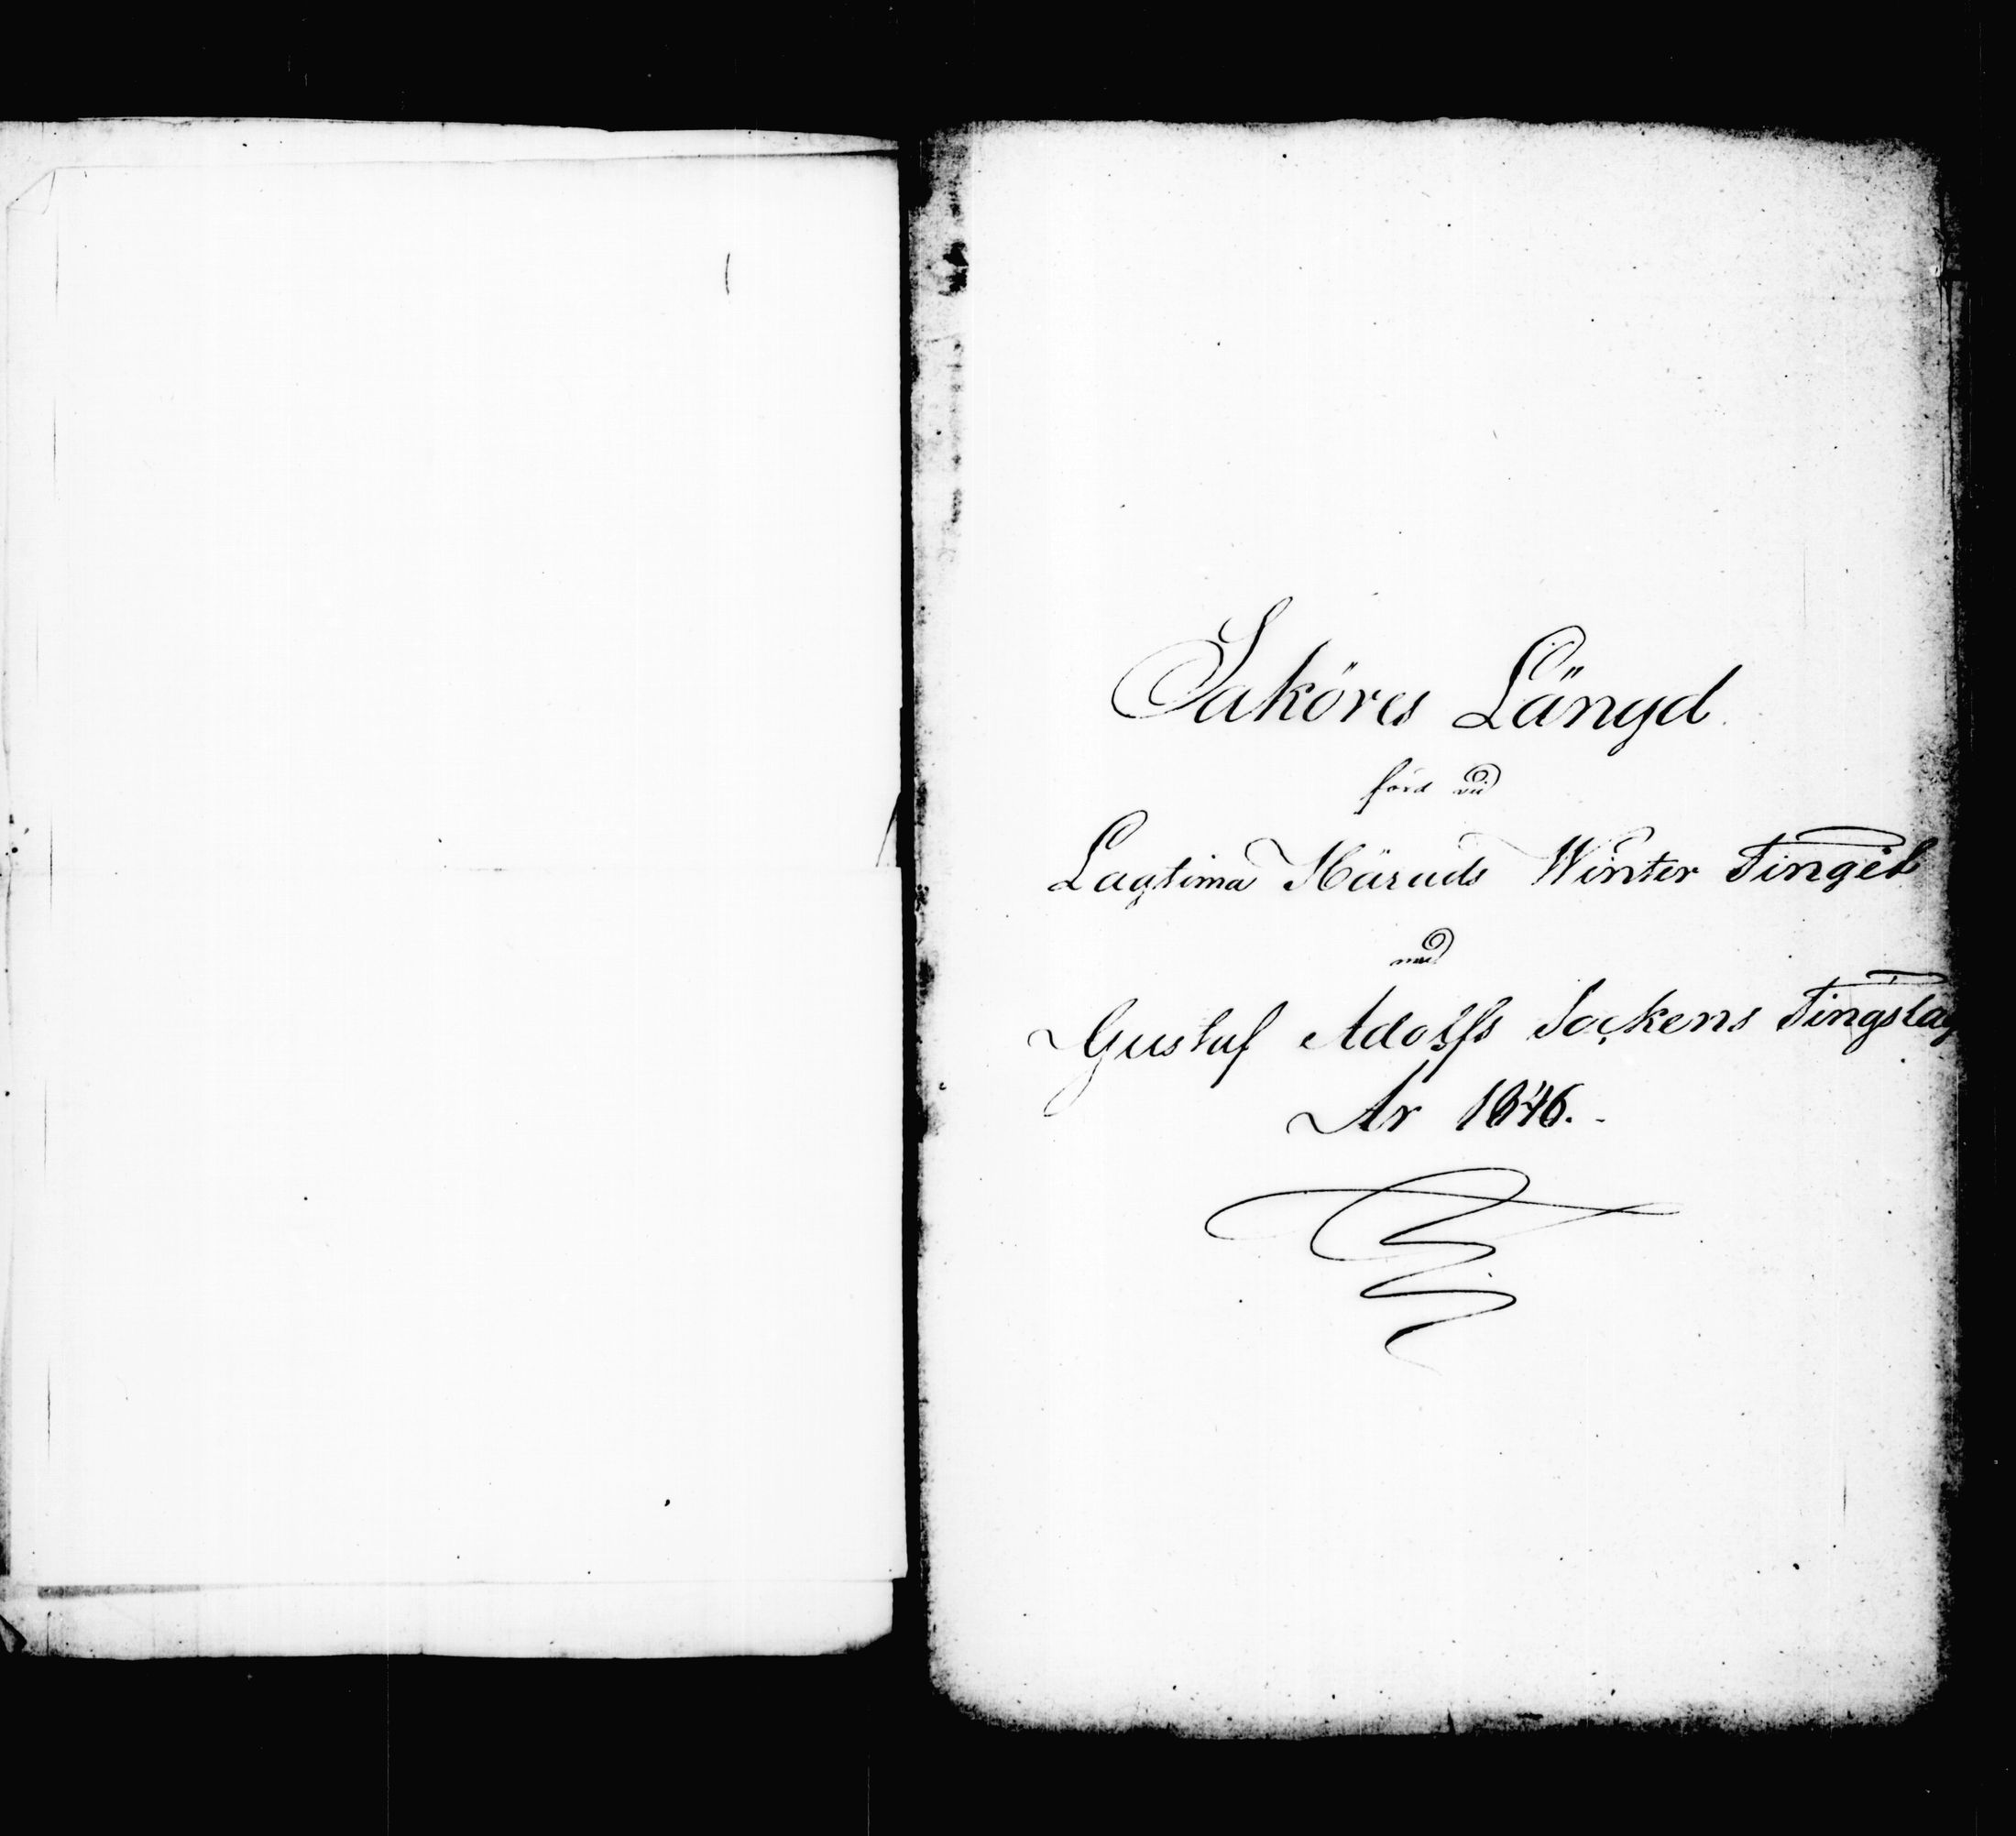 Saköres Längd
förd vid
Lagtima Härads Winter Tinget
med
Gustaf Adolfs Sockens Tingslag
År 1846.